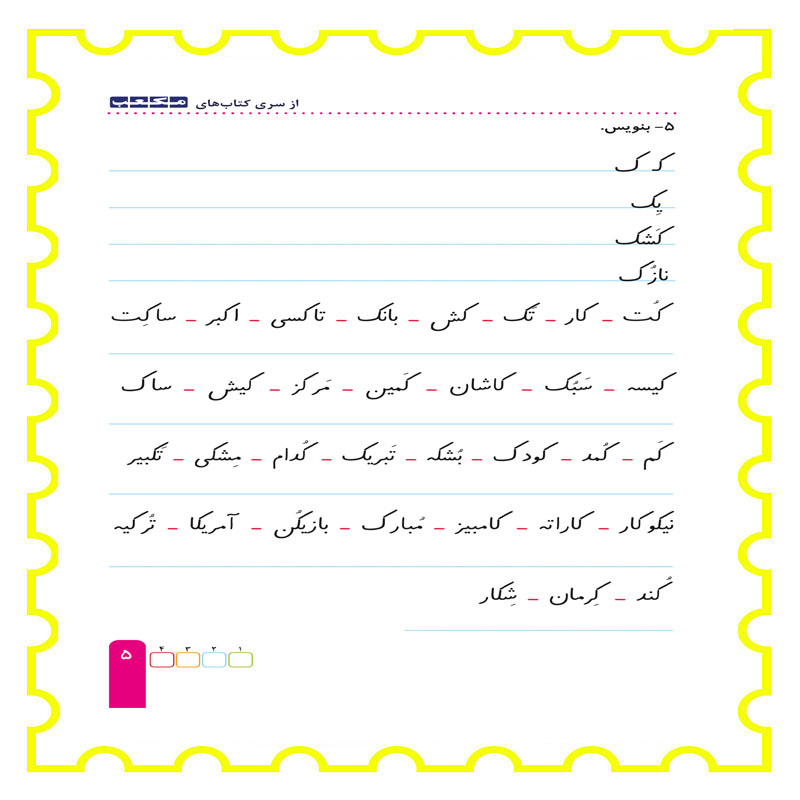 از سری کتاب‌های مکعب
۵- بنویس.
کـ ک
پِک
کَشک
نازُک
کُت – کار – تَک – کش – بانک – تاکسی – اکبر – ساکِت
کیسه – سَبُک – کاشان – کَمین – مَرکز – کیش – ساک
کَم – کُمد – کودک – بُشکه – تَبریک – کُدام – مِشکی – تَکبیر
نیکوکار – کاراته – کامبیز – مُبارک – بازیکُن – آمریکا – تُرکیه
کُند – کِرمان – شِکار
۱ ۲ ۳ ۴
۵